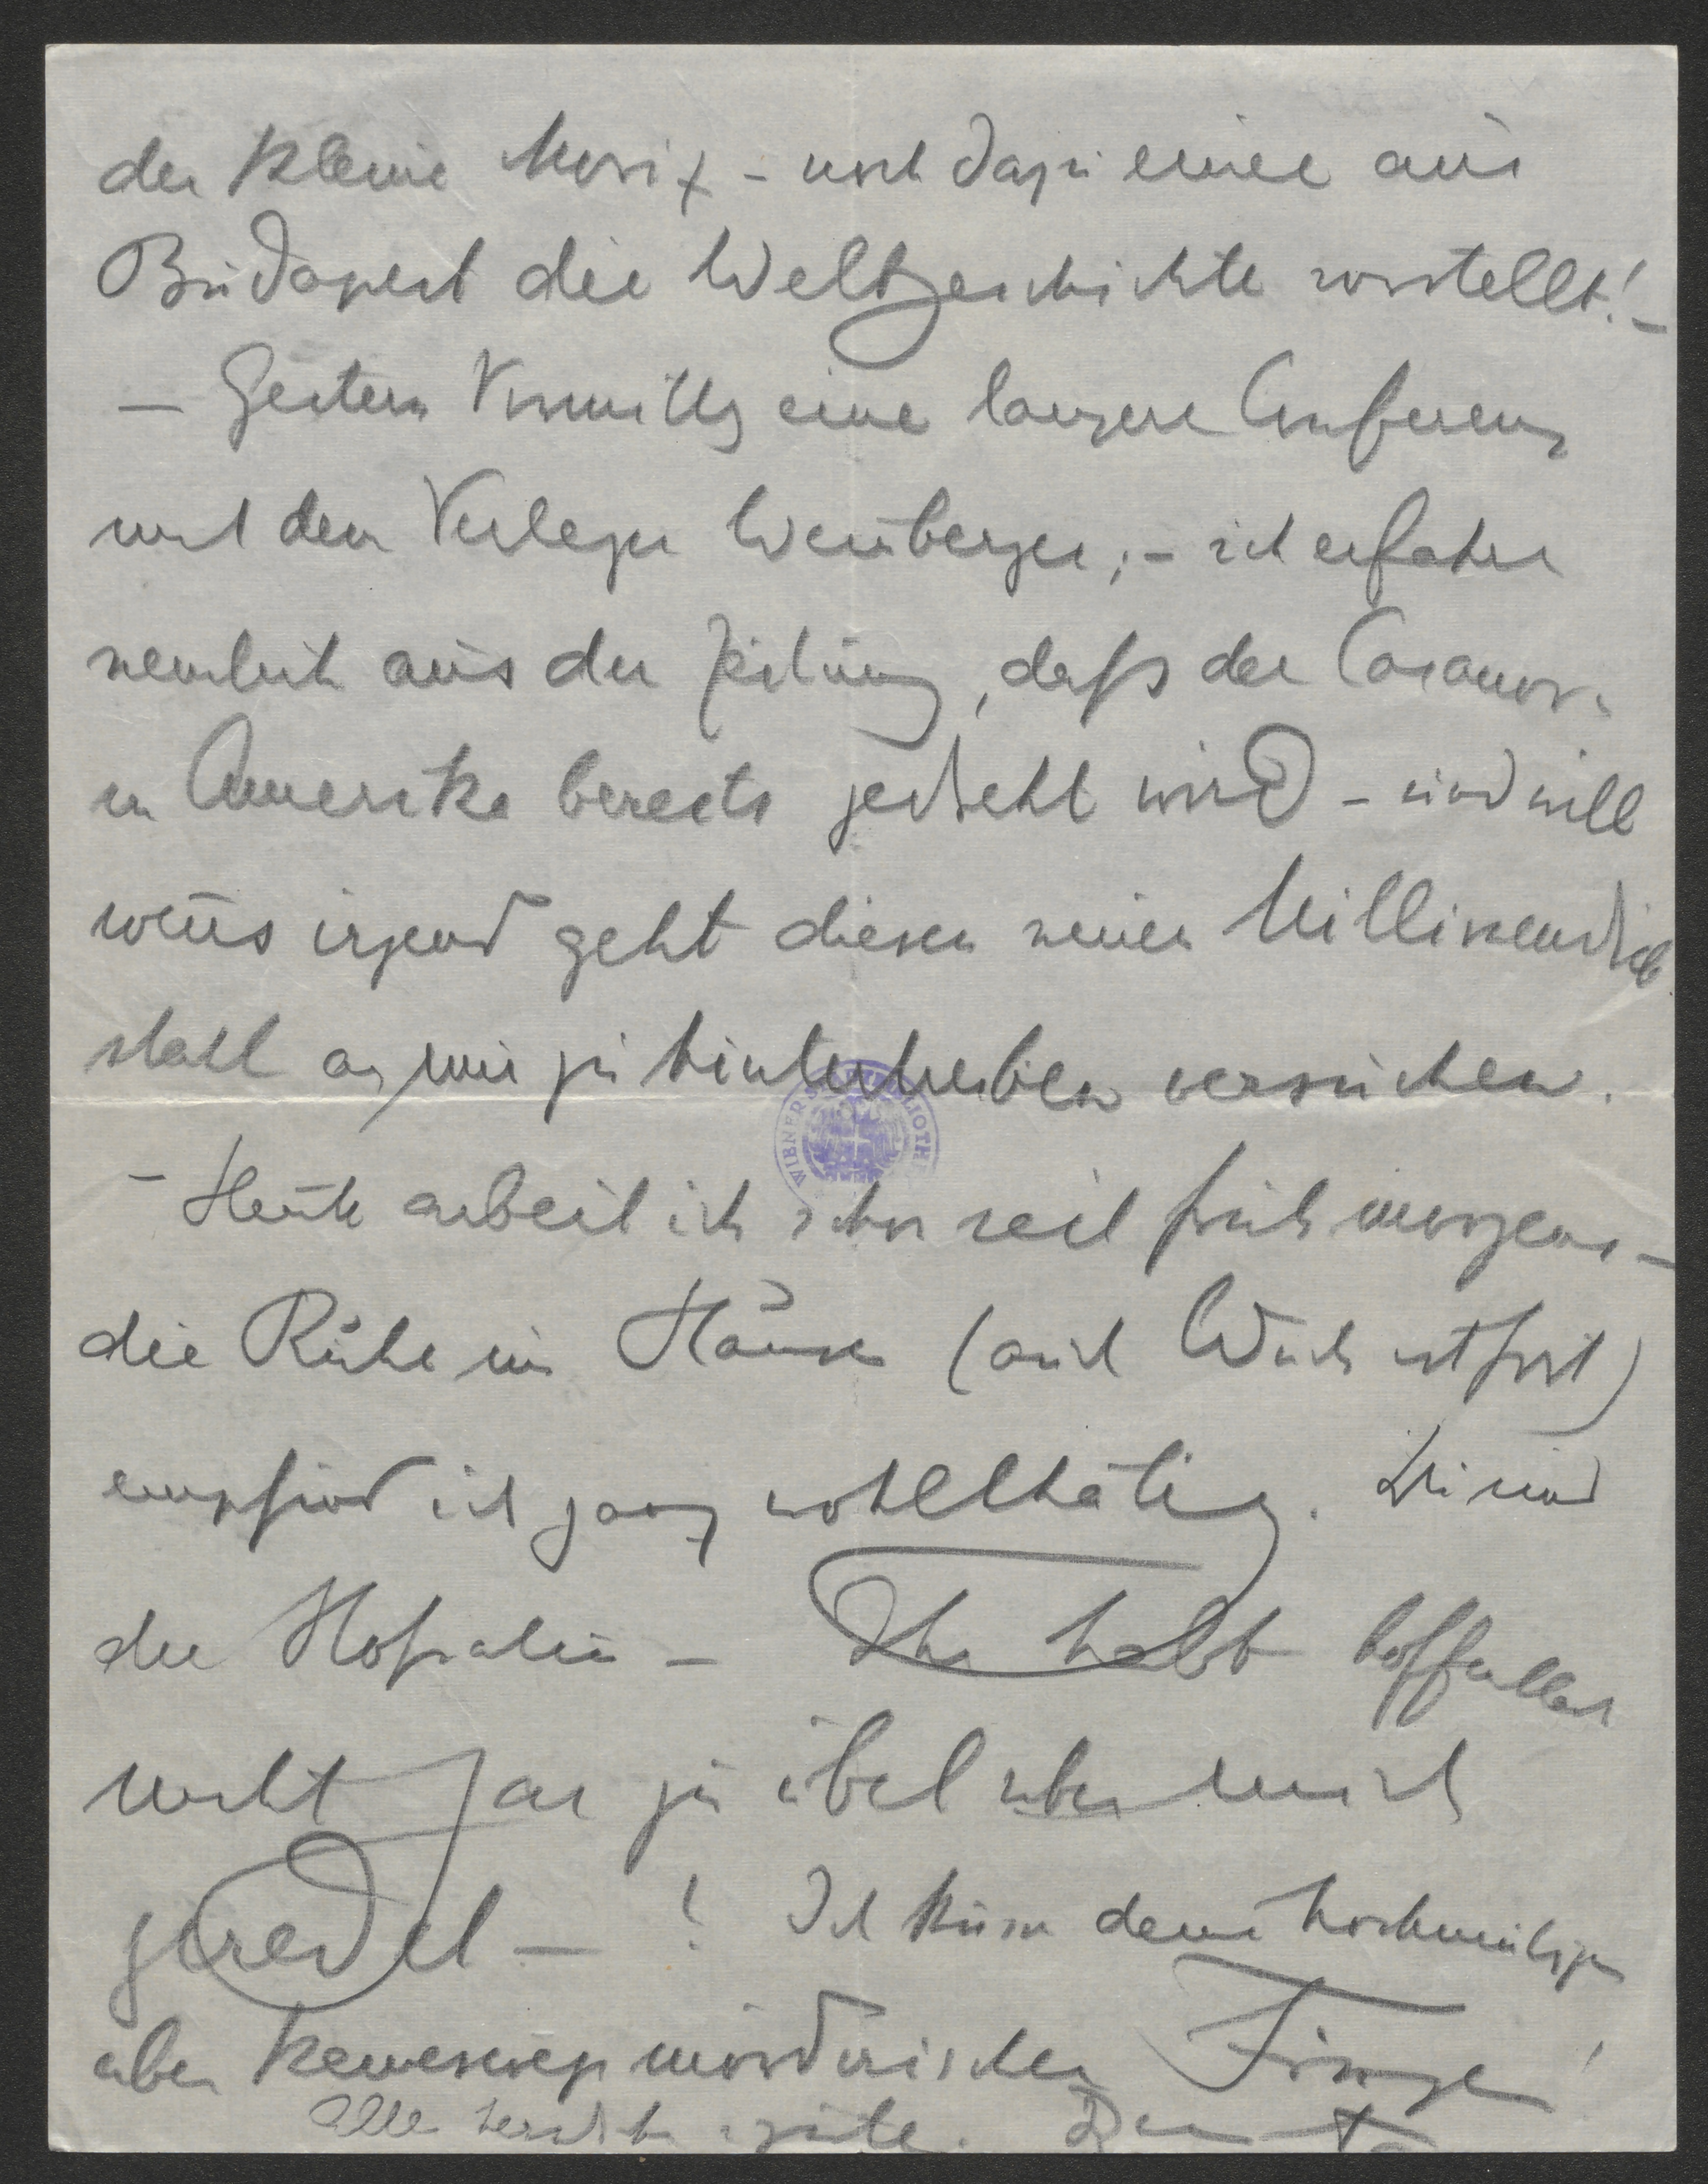 der kleine Moritz – noch dazu einer aus
Budapest die Weltgeschichte vorstellt! –
– Gestern Vormittg eine längere Conferenz
mit dem Verleger Weinberger; – ich erfahre
nemlich aus der Zeitung, dass der Casanova
in Amerika bereits gedreht wird – und will
wens irgend geht diesen neuen Millionendieb
stahl an mir zu hintertreiben versuchen.
– Heute arbeit ich schon seit früh morgens –
die Ruhe im Hause (auch Wuch ist fort)
empfind ich ganz wohlthätig. Du und
der Hofrat – Ihr habt hoffentlich
nicht gar zu übel über mich
geredet – ! Ich küsse dem hochmütigen
aber keineswegs mörderischen
Alles herzliche grüße. Dein
WIENER STADTBIBLIOTHEK